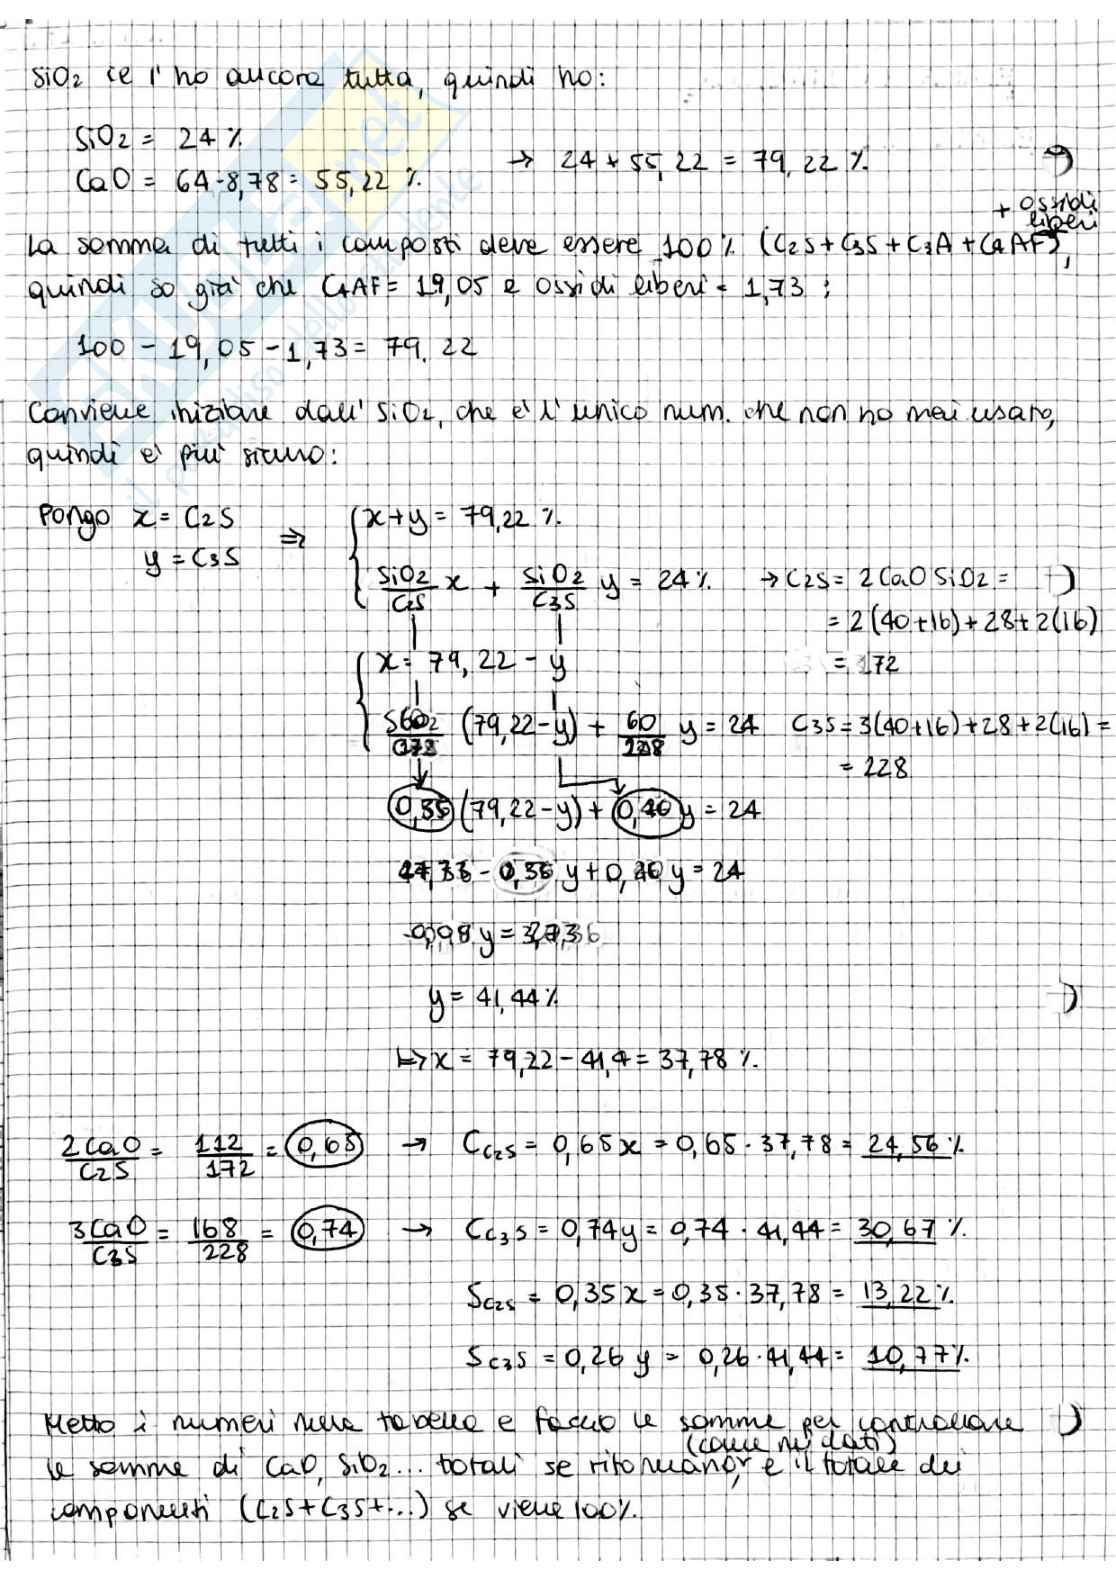 SiO2 ce l'ho ancora tutta, quindi ho:
SiO2 = 24 %
CaO = 64-8,78 = 55,22 %.
→ 24 + 55,22 = 79,22 %.
+ ossidi
liberi
La somma di tutti i composti deve essere 100% (C2S + C3S + C3A + C4AF),
quindi so già che C4AF = 19,05 e ossidi liberi = 1,73 ;
100 - 19,05 - 1,73 = 79,22
Conviene iniziare dall'SiO2, che è l'unico num. che non ho mai usato,
quindi è più sicuro:
Pongo x = C2S
y = C3S
⇒ x+y = 79,22 %.
SiO2/C2S x + SiO2/C3S y = 24 %
→ C2S = 2CaO SiO2 =
= 2(40+16) + 28 + 2(16)
= 172
x = 79,22 - y
(79,22-y) + 60/228 y = 24
C3S = 3(40+16) + 28 + 2(16) =
= 228
0,35 (79,22-y) + y = 24
y = 24
y = 41,44 %
↦ x = 79,22 - 41,4 = 37,78 %.
2CaO/C2S = 112/172 = 0,65 → CC2S = 0,65x = 0,65 · 37,78 = 24,56 %
3CaO/C3S = 168/228 = 0,74 → CC3S = 0,74y = 0,74 · 41,44 = 30,67 %.
SC2S = 0,35x = 0,35 · 37,78 = 13,22 %.
SC3S = 0,26 y = 0,26 · 41,44 = 10,77%.
Metto i numeri nella tabella e faccio le somme per controllare
(come nei dati)
le somme di CaO, SiO2... totali se ritornano, e il totale dei
componenti (C2S+C3S+...) se viene 100%.